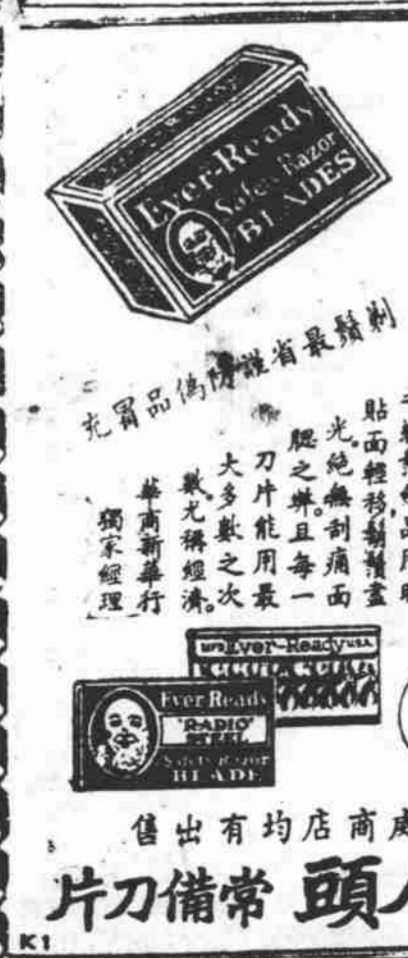 Ever-Ready
Safety Razor
BLADES
剃鬚最省謹防偽品冒充
貼面輕移鬍鬚盡
光。絕無刮痛面
腮之弊。且每一
刀片能用最
大多數之次
數。尤稱經濟。
華商新華行
獨家經理
MFD Ever-Ready U.S.A.
Ever-Ready
'RADIO'
STEEL
Safety Razor
BLADE
商店均有出售
頭 常備刀片
K1